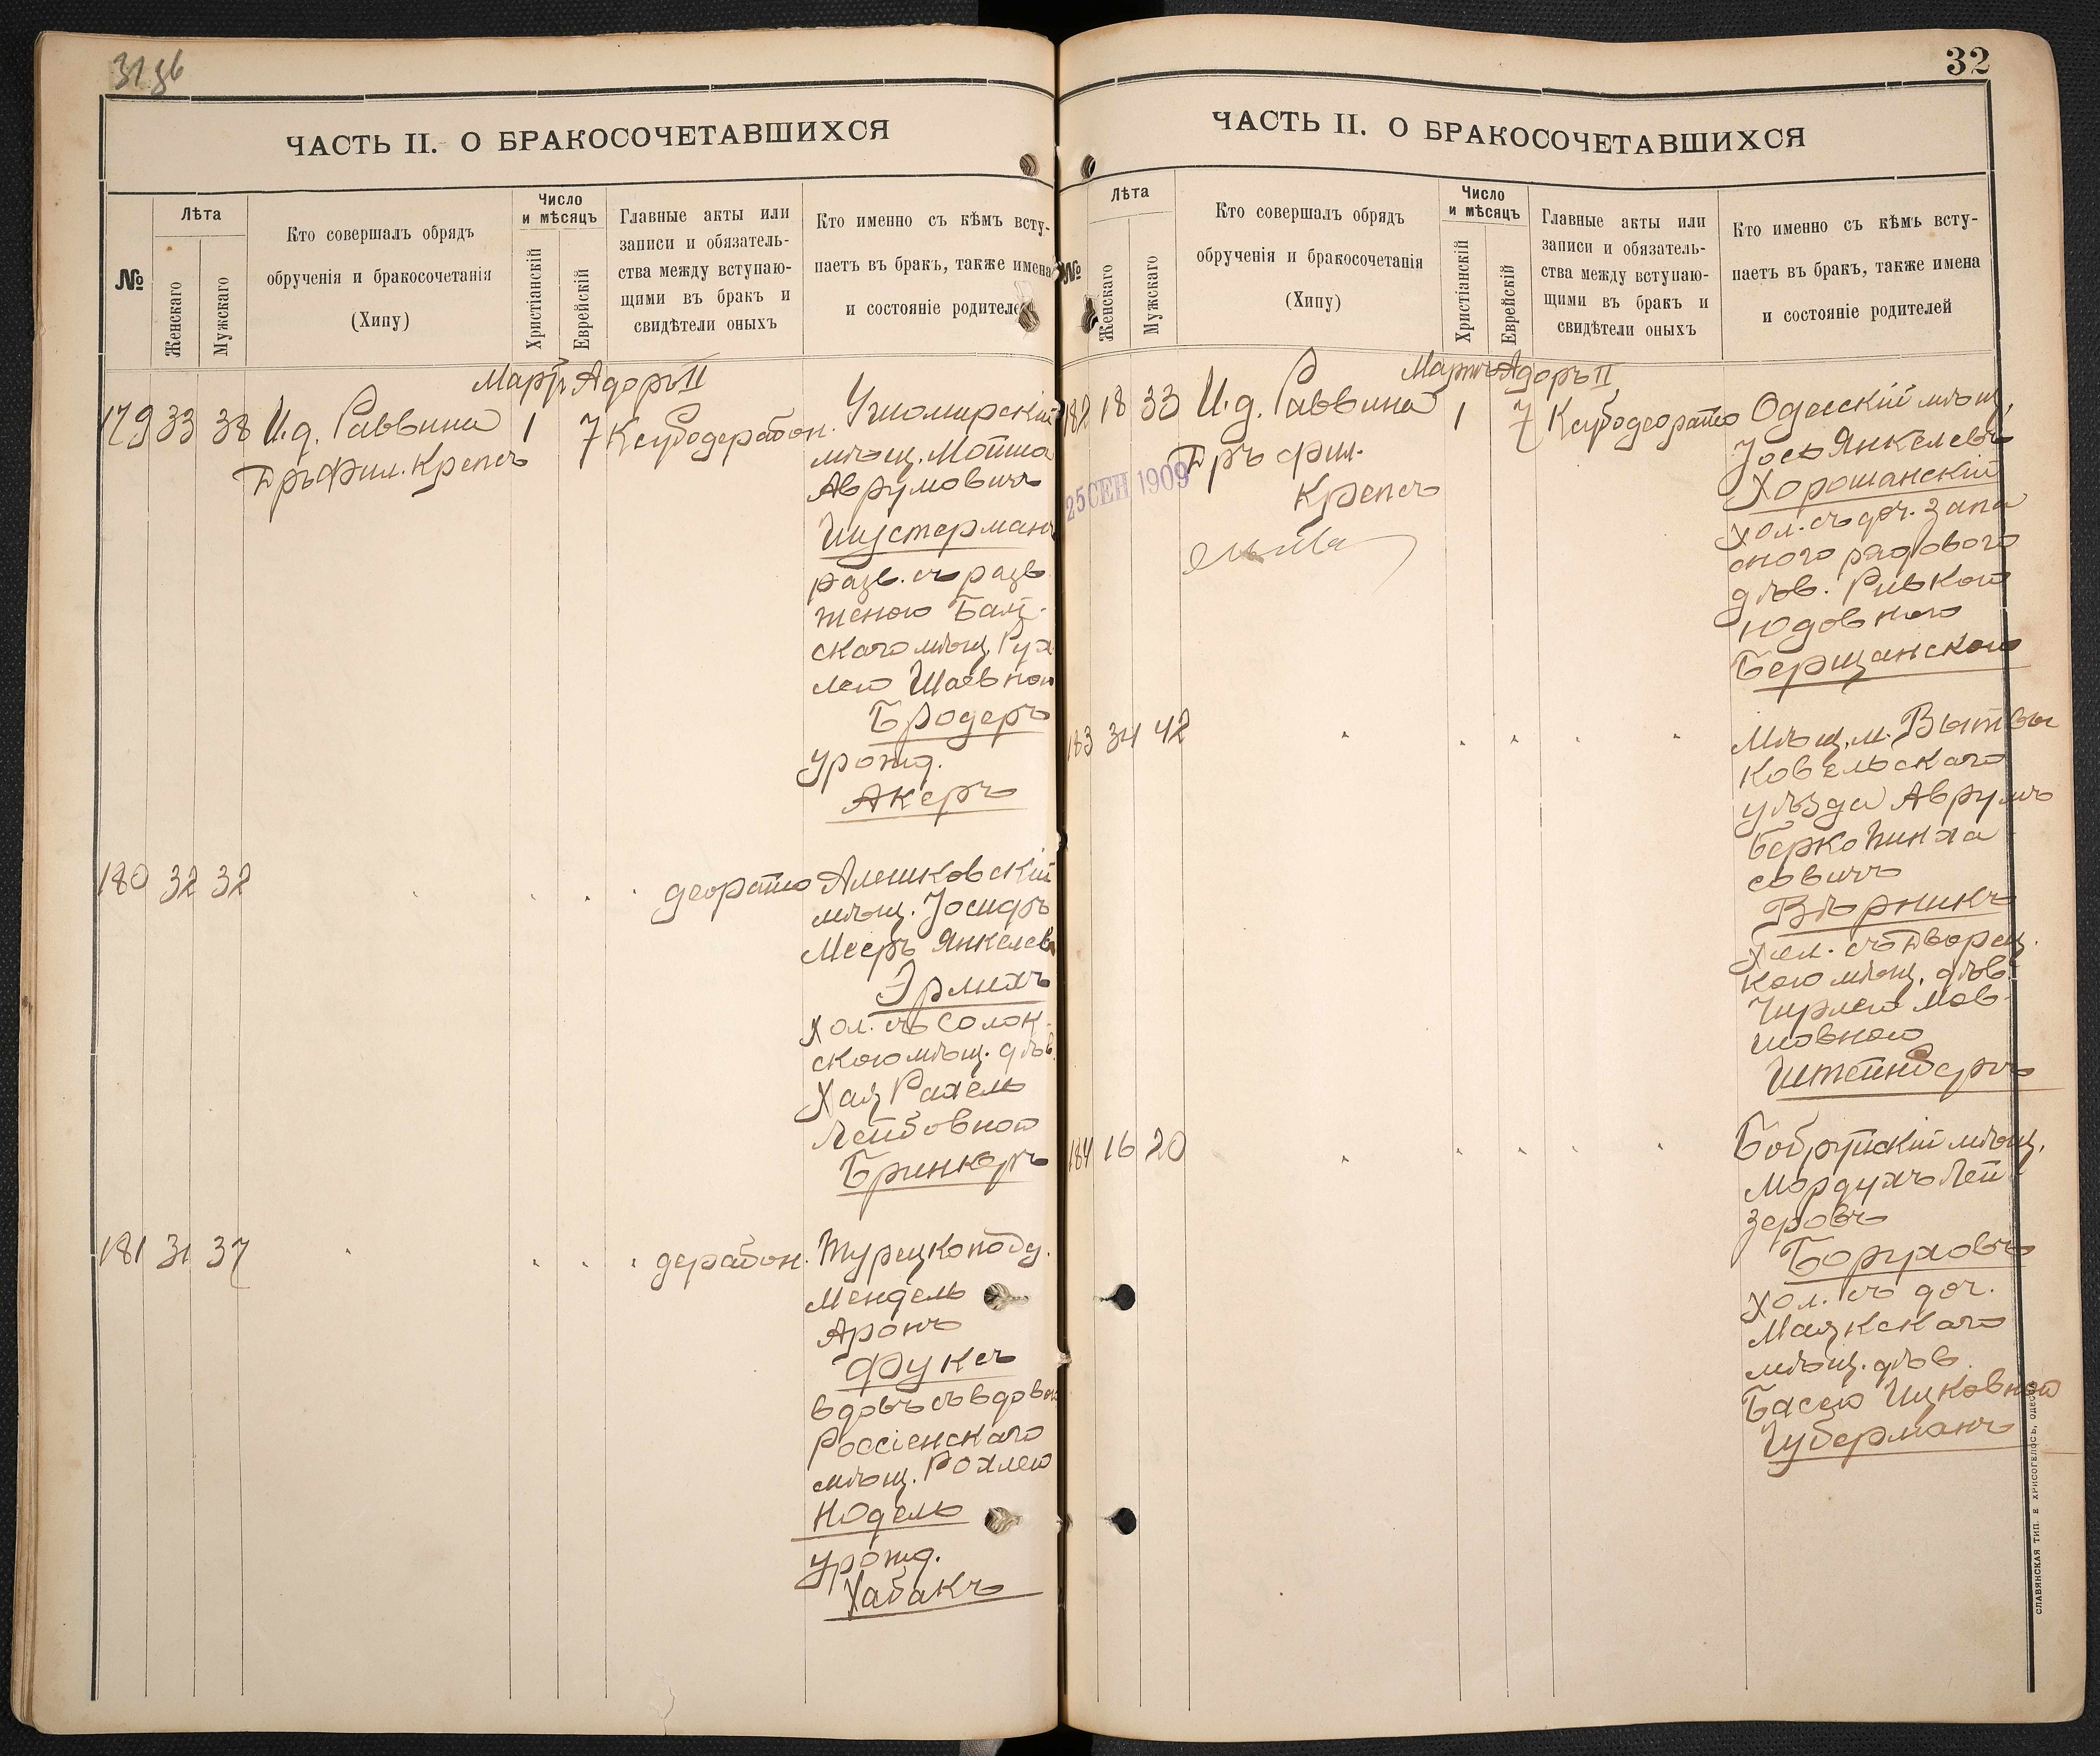 31 об
ЧАСТЬ II. О БРАКОСОЧЕТАВШИХСЯ
№
Лѣта
Женскаго
Мужскаго
Кто совершалъ обрядъ
обрученія и бракосочетанія
(Хипу)
Число
и мѣсяцъ
Христіанскій
Еврейскій
Главные акты или
записи и обязатель-
ства между вступаю-
щими въ бракъ и
свидѣтели оныхъ
Кто именно съ кѣмъ всту-
паетъ въ бракъ, также имена
и состояніе родителей
Мартъ Адоръ II
179 33 38 И.д. Раввина 1 7 Ксубодерабон.
Д-ръ Фил. Крепсъ
мѣщ. Мотня
Аврумовичъ
Шустерманъ
разв. съ разв
женою Балт-
скаго мѣщ. Рух
лею Шаевною
Бродеръ
урожд.
Акеръ
180 32 32 " " " " деорато Алешковскій
мѣщ. Іосифъ
Мееръ Янкелев
Эрлихъ
хол. съ Солок-
скою мѣщ. дѣв.
Хая Рахель
Лейбовной
Бринкеръ
181 31 37 " " " " дерабон. Турецкоподд.
Мендель
Аронъ
Фуксъ
вдовъ съ вдовою
Россіенскаго
мѣщ. Рохлею
Нодель
урожд.
Хабакъ
32
ЧАСТЬ II. О БРАКОСОЧЕТАВШИХСЯ
№
Лѣта
Женскаго
Мужскаго
Кто совершалъ обрядъ
обрученія и бракосочетанія
(Хипу)
Число
и мѣсяцъ
Христіанскій
Еврейскій
Главные акты или
записи и обязатель-
ства между вступаю-
щими въ бракъ и
свидѣтели оныхъ
Кто именно съ кѣмъ всту-
паетъ въ бракъ, также имена
и состояніе родителей
Мартъ Адоръ II
182 18 33 И.д. Раввина 1 7 Ксубодеорато Одесскій мѣщ.
Д-ръ Фил.
Крепсъ
25 СЕН 1909
Іось Янкелевъ
Хорошанскій
хол. съ доч. запа
сного рядового
дѣв. Ривкой
Юдовною
Берщанскою
183 34 42 " " " " " Мѣщ. м. Вытвы
Ковельскаго
уѣзда Аврумъ
Берко Пинха
совичъ
Вѣрникъ
хол. съ Дворец.
кою мѣщ. дѣв.
Чирлею Мов-
шовною
Штейнбергъ
184 16 20 " " " " " Бобруйскій мѣщ.
Мордухъ Лей
зеровъ
Боруховъ
хол. съ доч.
Маякскаго
мѣщ. дѣв.
Басею Ицковной
Губерманъ
СЛАВЯНСКАЯ ТИП. Е ХРИСОГЕЛОСЪ, ОДЕССА